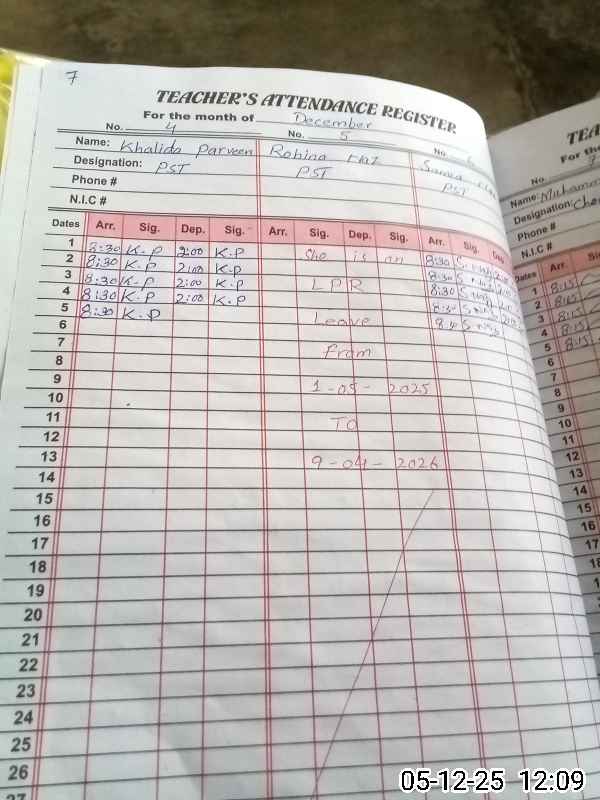 7
TEACHER'S ATTENDANCE REGISTER
For the month of December
No. 4 No. 5 No.
Name: Khalida Parveen Rohina
Designation: PST PST PST
Phone #
N.I.C #
Dates Arr. Sig. Dep. Sig. Arr. Sig. Dep. Sig. Arr. Sig. Dep.
1 8:30 K.P 2:00 K.P She is on 8:30
2 8:30 K.P 2:00 K.P LPR 8:30
3 8:30 K.P 2:00 K.P 8:30
4 8:30 K.P 2:00 K.P Leave
5 8:30 K.P
6 From
7
8 1-05-2025
9
10 To
11
12 9-04-2026
13
14
15
16
17
18
19
20
21
22
23
24
25
26
27
TEA
For the
No. 7
Name: Muhamm
Designation: Che
Phone #
N.I.C #
Dates Arr. Sig
1 8:15
2 8:15
3 8:15
4 8:15
5 8:15
6
7
8
9
10
11
12
13
14
15
16
17
18
05-12-25 12:09